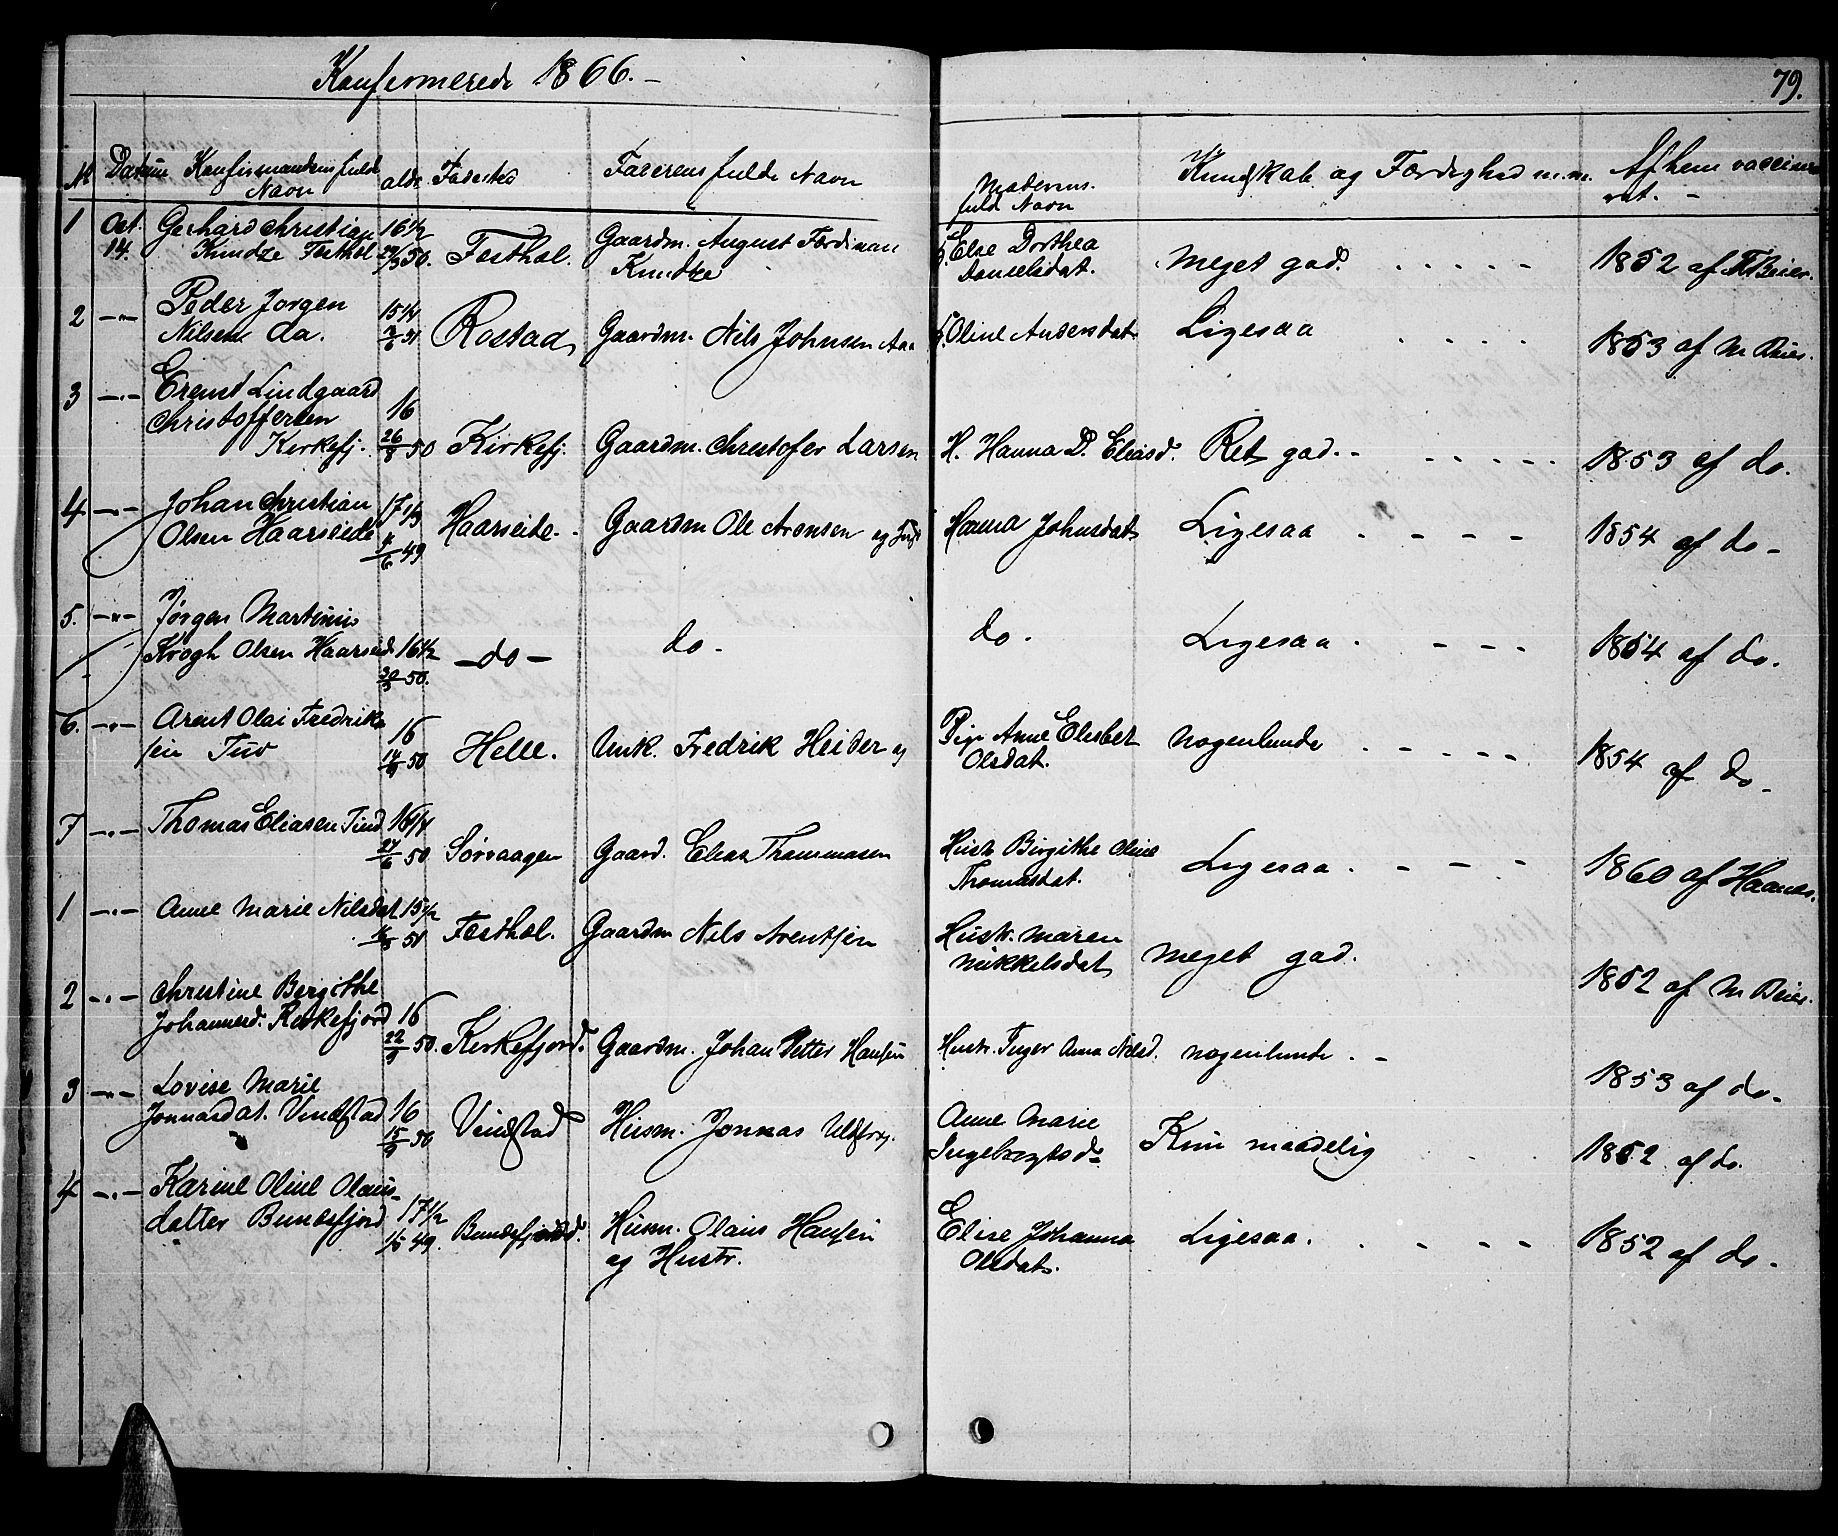 Konfirmerede 1866.-
79.
No Datum Konfirmandens fulde Navn alder Fødested Faderens fulde Navn Moderens fuld Navn Kundskab og Færdighed m.m. Af hvem vaccineret. -
1 Oct. 14. Gerhard Christian Knudze Festhel 16 1/2 50. Festhel. Gaardm. August Ferdinan Knudtze Else Dorthea Danielsdat. Meget god. . . . . . 1852 af M Beier.
2 -"- Peder Jørgen Nilsen da. 15 1/4 51 Rostad Gaardm. Nils Johnsen Oline Andersdat Ligesaa . . . . 1853 af M Beier.
3 -"- Ernst Lindgaard Christoffersen Kirkefj. 16 26/8 50 Kirkefj. Gaardm. Christofer Larsen H. Hanna D. Eliasd. Ret god. - . . . . . 1853 af do.
4 -"- Johan Christian Olsen Haarseide 17 1/3 49 Haarseide. Gaardm Ole Aronsen og Hanna Johnsdat Ligesaa - - - - 1854 af do -
5. -"- Jørgen Martinus Krogh Olsen Haarseid 16 1/2 50. -do- do - do - Ligesaa . - - - 1854 af do.
6. -"- Arent Olai Fredriksen Tuv 16 50 Helle. Unk. Fredrik Heider og Pige Anne Elesbet Olsdat. nogenlunde . - - - - 1854 af do -
7 -"- Thomas Eliasen Tind 16 1/4 27/6 50 Sørvaagen Gaard. Elias Thommasen Hustr Birgithe Oline Thomasdat. Ligesaa - - - - 1860 af Haanes.
1 -"- Anne Marie Nilsdat 15 1/2 51 Festhel. Gaardm Nils Arentsen Hustr. Maren Mikkelsdat meget god. 1852 af M Beier.
2 -"- Christine Bergithe Johannesd. Kirkefjord 16 22/9 50. Kirkefjord. Gaardm. Johan Petter Hansen Hustr. Inger Anna Nilsd. nogenlunde . - 1853 af do -
3 -"- Lovise Marie Jonnasdat. Vindstad 16 15/9 50 Vindstad Husm. Jonnas Anne Marie Ingebregtsd. Kun maadelig 1852 af do.
4 -"- Karine Oline Olausdatter Bunesfjord 17 1/2 1/5 49. Bunesfjord. Husm. Olaus Hansen og Hustr. Elise Johanna Olsdat. Ligesaa. . - - - 1852 af do -